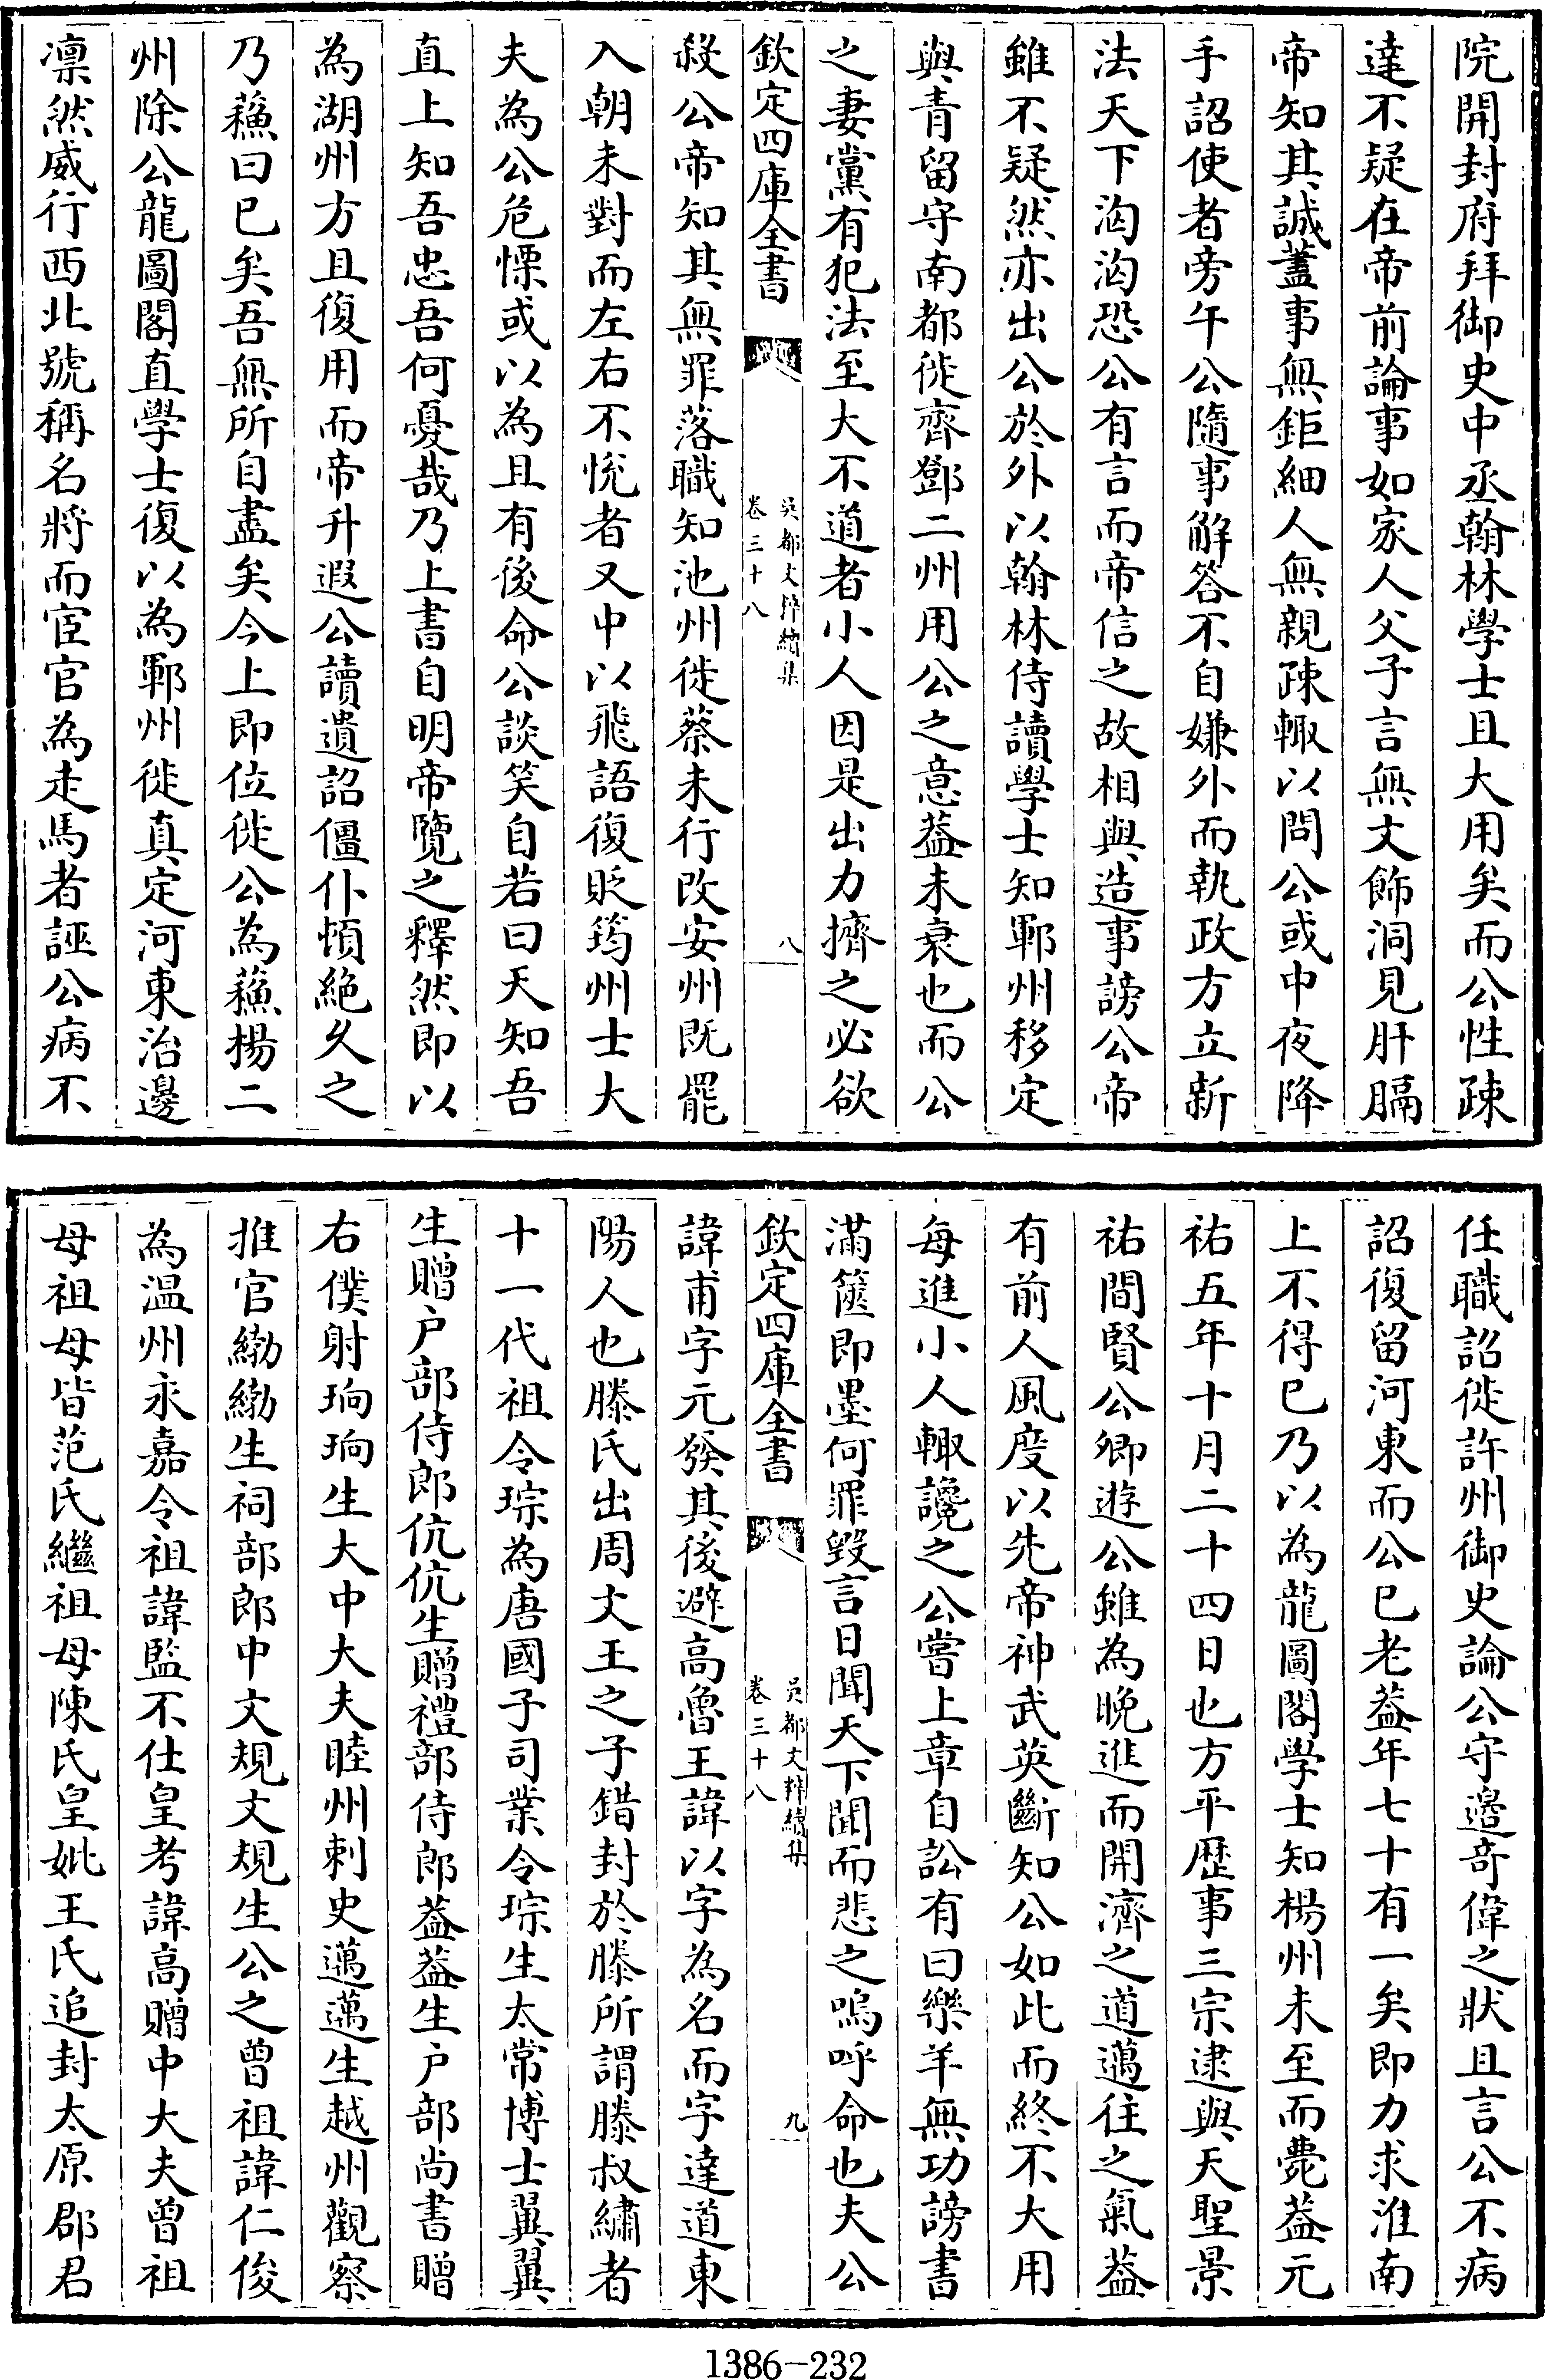 院開封府拜御史中丞翰林學士且大用矣而公性疎
達不疑在帝前論事如家人父子言無文飾洞見肝膈
帝知其誠蓋事無鉅細人無親疎輙以問公或中夜降
手詔使者旁午公隨事解答不自嫌外而執政方立新
法天下洶洶恐公有言而帝信之故相與造事謗公帝
雖不疑然亦出公於外以翰林侍讀學士知鄆州移定
與青留守南都徙齊鄧二州用公之意葢未衰也而公
之妻黨有犯法至大不道者小人因是出力擠之必欲
欽定四庫全書
吳都文粹續集
卷三十八
八
殺公帝知其無罪落職知池州徙蔡未行改安州既罷
入朝未對而左右不悅者又中以飛語復貶筠州士大
夫為公危慄或以為且有後命公談笑自若曰天知吾
直上知吾忠吾何憂哉乃上書自明帝覽之釋然即以
為湖州方且復用而帝升遐公讀遺詔僵仆頓絶久之
乃蘓曰已矣吾無所自盡矣今上即位徙公為蘓楊二
州除公龍圖閣直學士復以為鄆州徙真定河東治邊
凛然威行西北號稱名將而宦官為走馬者誣公病不
任職詔徙許州御史論公守邉竒偉之狀且言公不病
詔復留河東而公已老葢年七十有一矣即力求淮南
上不得已乃以為龍圖閣學士知楊州未至而薨葢元
祐五年十月二十四日也方平歴事三宗逮與天聖景
祐間賢公卿遊公雖為晚進而開濟之道邁往之氣葢
有前人風度以先帝神武英斷知公如此而終不大用
每進小人輙讒之公嘗上章自訟有曰樂羊無功謗書
滿篋即墨何罪毀言日聞天下聞而悲之嗚呼命也夫公
欽定四庫全書
吳都文粹續集
卷三十八
九
諱甫字元發其後避高魯王諱以字為名而字達道東
陽人也滕氏出周文王之子錯封於滕所謂滕叔繡者
十一代祖令琮為唐國子司業令琮生太常博士翼翼
生贈户部侍郎伉伉生贈禮部侍郎葢葢生户部尚書贈
右僕射珦珦生大中大夫睦州刺史邁邁生越州觀察
推官緲緲生祠部郎中文規文規生公之曾祖諱仁俊
為温州永嘉令祖諱監不仕皇考諱高贈中大夫曾祖
母祖母皆范氏繼祖母陳氏皇妣王氏追封太原郡君
1386-232